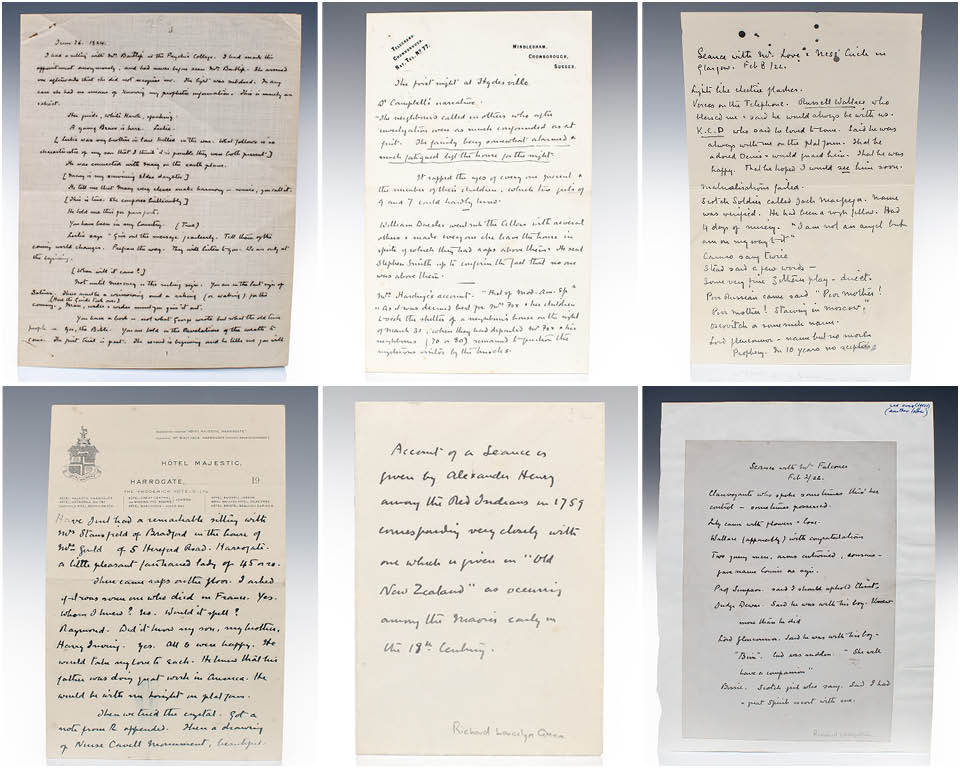 June 26. 1924.
I had a sitting with Mrs Barkel at the Psychic College. I had made the
appointment anonymously, and had never before seen Mrs. She assured
me afterwards that she did not recognise me. The light was subdued. In any
case she had no means of knowing my prophetic information. This is merely an
extract.
Her guide, White Hawk, speaking.
A young Brave is here. Leslie.
[Leslie was my brother in law killed in the war. What follows is so
characteristic of my son that I think it is possible they were both present]
He was connected with Mary on the earth plane.
[Mary is my surviving elder daughter]
He tell me that Mary very clever make harmony - music, you call it.
[This is true. She composes brilliantly]
He told me this for your part.
You have been in my Country. (True)
Leslie says "Give out this message fearlessly. Tell them of the
coming world changes. Prepare the way. They will listen to you. We are only at
the beginning.
[When will it come?]
Not until Mercury is the ruling sign. You are in the last sign of
[Here the Guide took over]
You have a book - not what George write but what the old time
people - Yes, the Bible. You are told in the Revelations of the wrath to
come. The first trial is past. The second is beginning and he tells me you will
TELEGRAMS:
CROWBOROUGH.
NAT. TEL. No 77.
WINDLESHAM,
CROWBOROUGH,
SUSSEX.
The first night at Hydesville
Dr Campbell's narrative.
"The neighbours called in others who after
investigation were as much confounded as at
first. The family being somewhat alarmed &
much fatigued left the house for the night.
It rapped the ages of every one present &
the number of their children, which two girls of
9 and 7 could hardly have.
William Duesler went into the Cellar with several
others & made everyone else leave the house in
spite of which they had raps above them. He sent
Stephen Smith up to confirm the fact that no one
was above them.
Mrs Hardinge's account. "Hist of Mod. Am. Sp"
"As it was deemed best for Mrs Fox & her children
to seek the shelter of a neighbour's house on the night
of March 31, when they had departed Mr Fox & his
neighbours (70 or 80) remained to question the
mysterious visitor by the knocks.
Seance with Mr Love & Ness' Circle in
Glasgow. Feb 8/22.
Lights like electric flashes.
Voices on the Telephone. Russell Wallace who
blessed me & said he would always be with us.
K.C.D who said he loved to come. Said he was
always with me on the platform. That he
adored Denis & would guard him. That he was
happy. That he hoped I would see him soon.
Materialisations failed.
Scotch Soldier called Jock Macgregor. Name
was verified. He had been a rough fellow. Had
4 days of misery. "I am not an angel but
am on my way to it"
Stead said a few words -
Some very fine Zither play - direct.
Poor Russian came said "Poor mother!
Poor mother! Starving in Moscow,
oscovitch & some such name.
Lord Glenconnor - name but no more
Prophecy. In 10 years no sceptics
HÔTEL MAJESTIC,
HARROGATE, 19
THE FREDERICK HOTELS LTD
Have just had a remarkable sitting with
Mrs Stansfield of Bradford in the house of
Mrs Guild of 5 Hereford Road. Harrogate.
a little pleasant fair haired lady of 45 or so.
There came raps on the floor. I asked
if it was someone who died in France. Yes.
Whom I knew? No. Would it spell?
Raymond. Did it know my son, my brother,
Harry Irving. Yes. All 6 were happy. He
would take my love to each. He knew that his
father was doing great work in America. He
would be with me tonight on platform.
Then we tried the crystal. Got a
note from R appended. Then a drawing
of Nurse Cavell Monument, beautiful.
Account of a Seance as
given by Alexander Henry
among the Red Indians in 1759
corresponding very closely with
one which is given in "Old
New Zealand" as occurring
among the Maoris early in
the 19th Century.
Richard Lancelyn Green
(another letter)
Seance with Mrs Falconer
Feb 2/22.
Clairvoyante who spoke sometimes thro' her
control - sometimes possessed.
Lily came with flowers & love.
Wallace (apparently) with congratulations
Two young men, arms entwined, cousins -
gave name Connie as sign.
Prof Simpson. said I should uphold Christ.
more than he did
Lord Glenconnor. Said he was with his boy -
"Bim". End was sudden. "She will
have a companion"
Bessie. Scotch girl who sang. Said I had
a great Spirit escort with me.
Richard Lancelyn Green